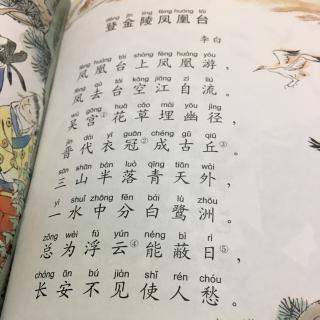 dēng jīn líng fèng huáng tái
登金陵凤凰台
李白
fèng huáng tái shàng fèng huáng yóu
凤凰台上凤凰游，
fèng qù tái kōng jiāng zì liú
凤去台空江自流。
wú gōng huā cǎo mái yōu jìng
吴宫①花草埋幽径，
jìn dài yī guān chéng gǔ qiū
晋代衣冠②成古丘③。
sān shān bàn luò qīng tiān wài
三山半落青天外，
yì shuǐ zhōng fēn bái lù zhōu
一水中分白鹭洲。
zǒng wèi fú yún néng bì rì
总为浮云④能蔽日⑤，
cháng ān bú jiàn shǐ rén chóu
长安不见使人愁。